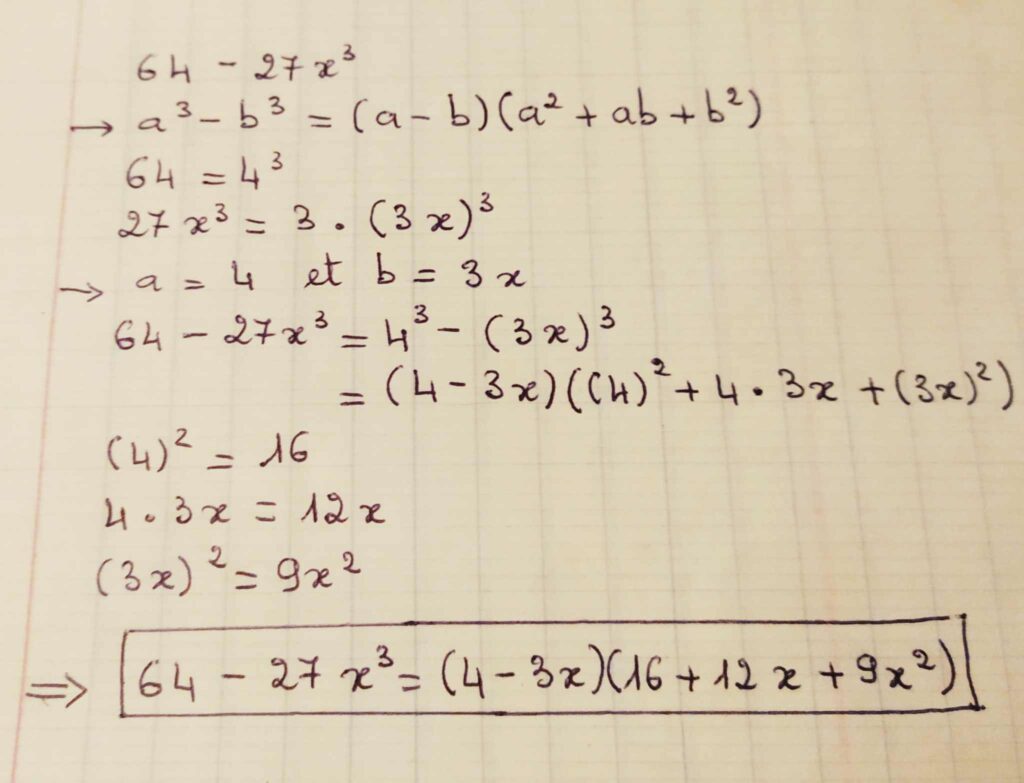 64 - 27x³
→ a³ - b³ = (a - b)(a² + ab + b²)
64 = 4³
27x³ = 3 . (3x)³
→ a = 4 et b = 3x
64 - 27x³ = 4³ - (3x)³
= (4 - 3x)((4)² + 4 . 3x + (3x)²)
(4)² = 16
4 . 3x = 12x
(3x)² = 9x²
⇒ 64 - 27x³ = (4 - 3x)(16 + 12x + 9x²)